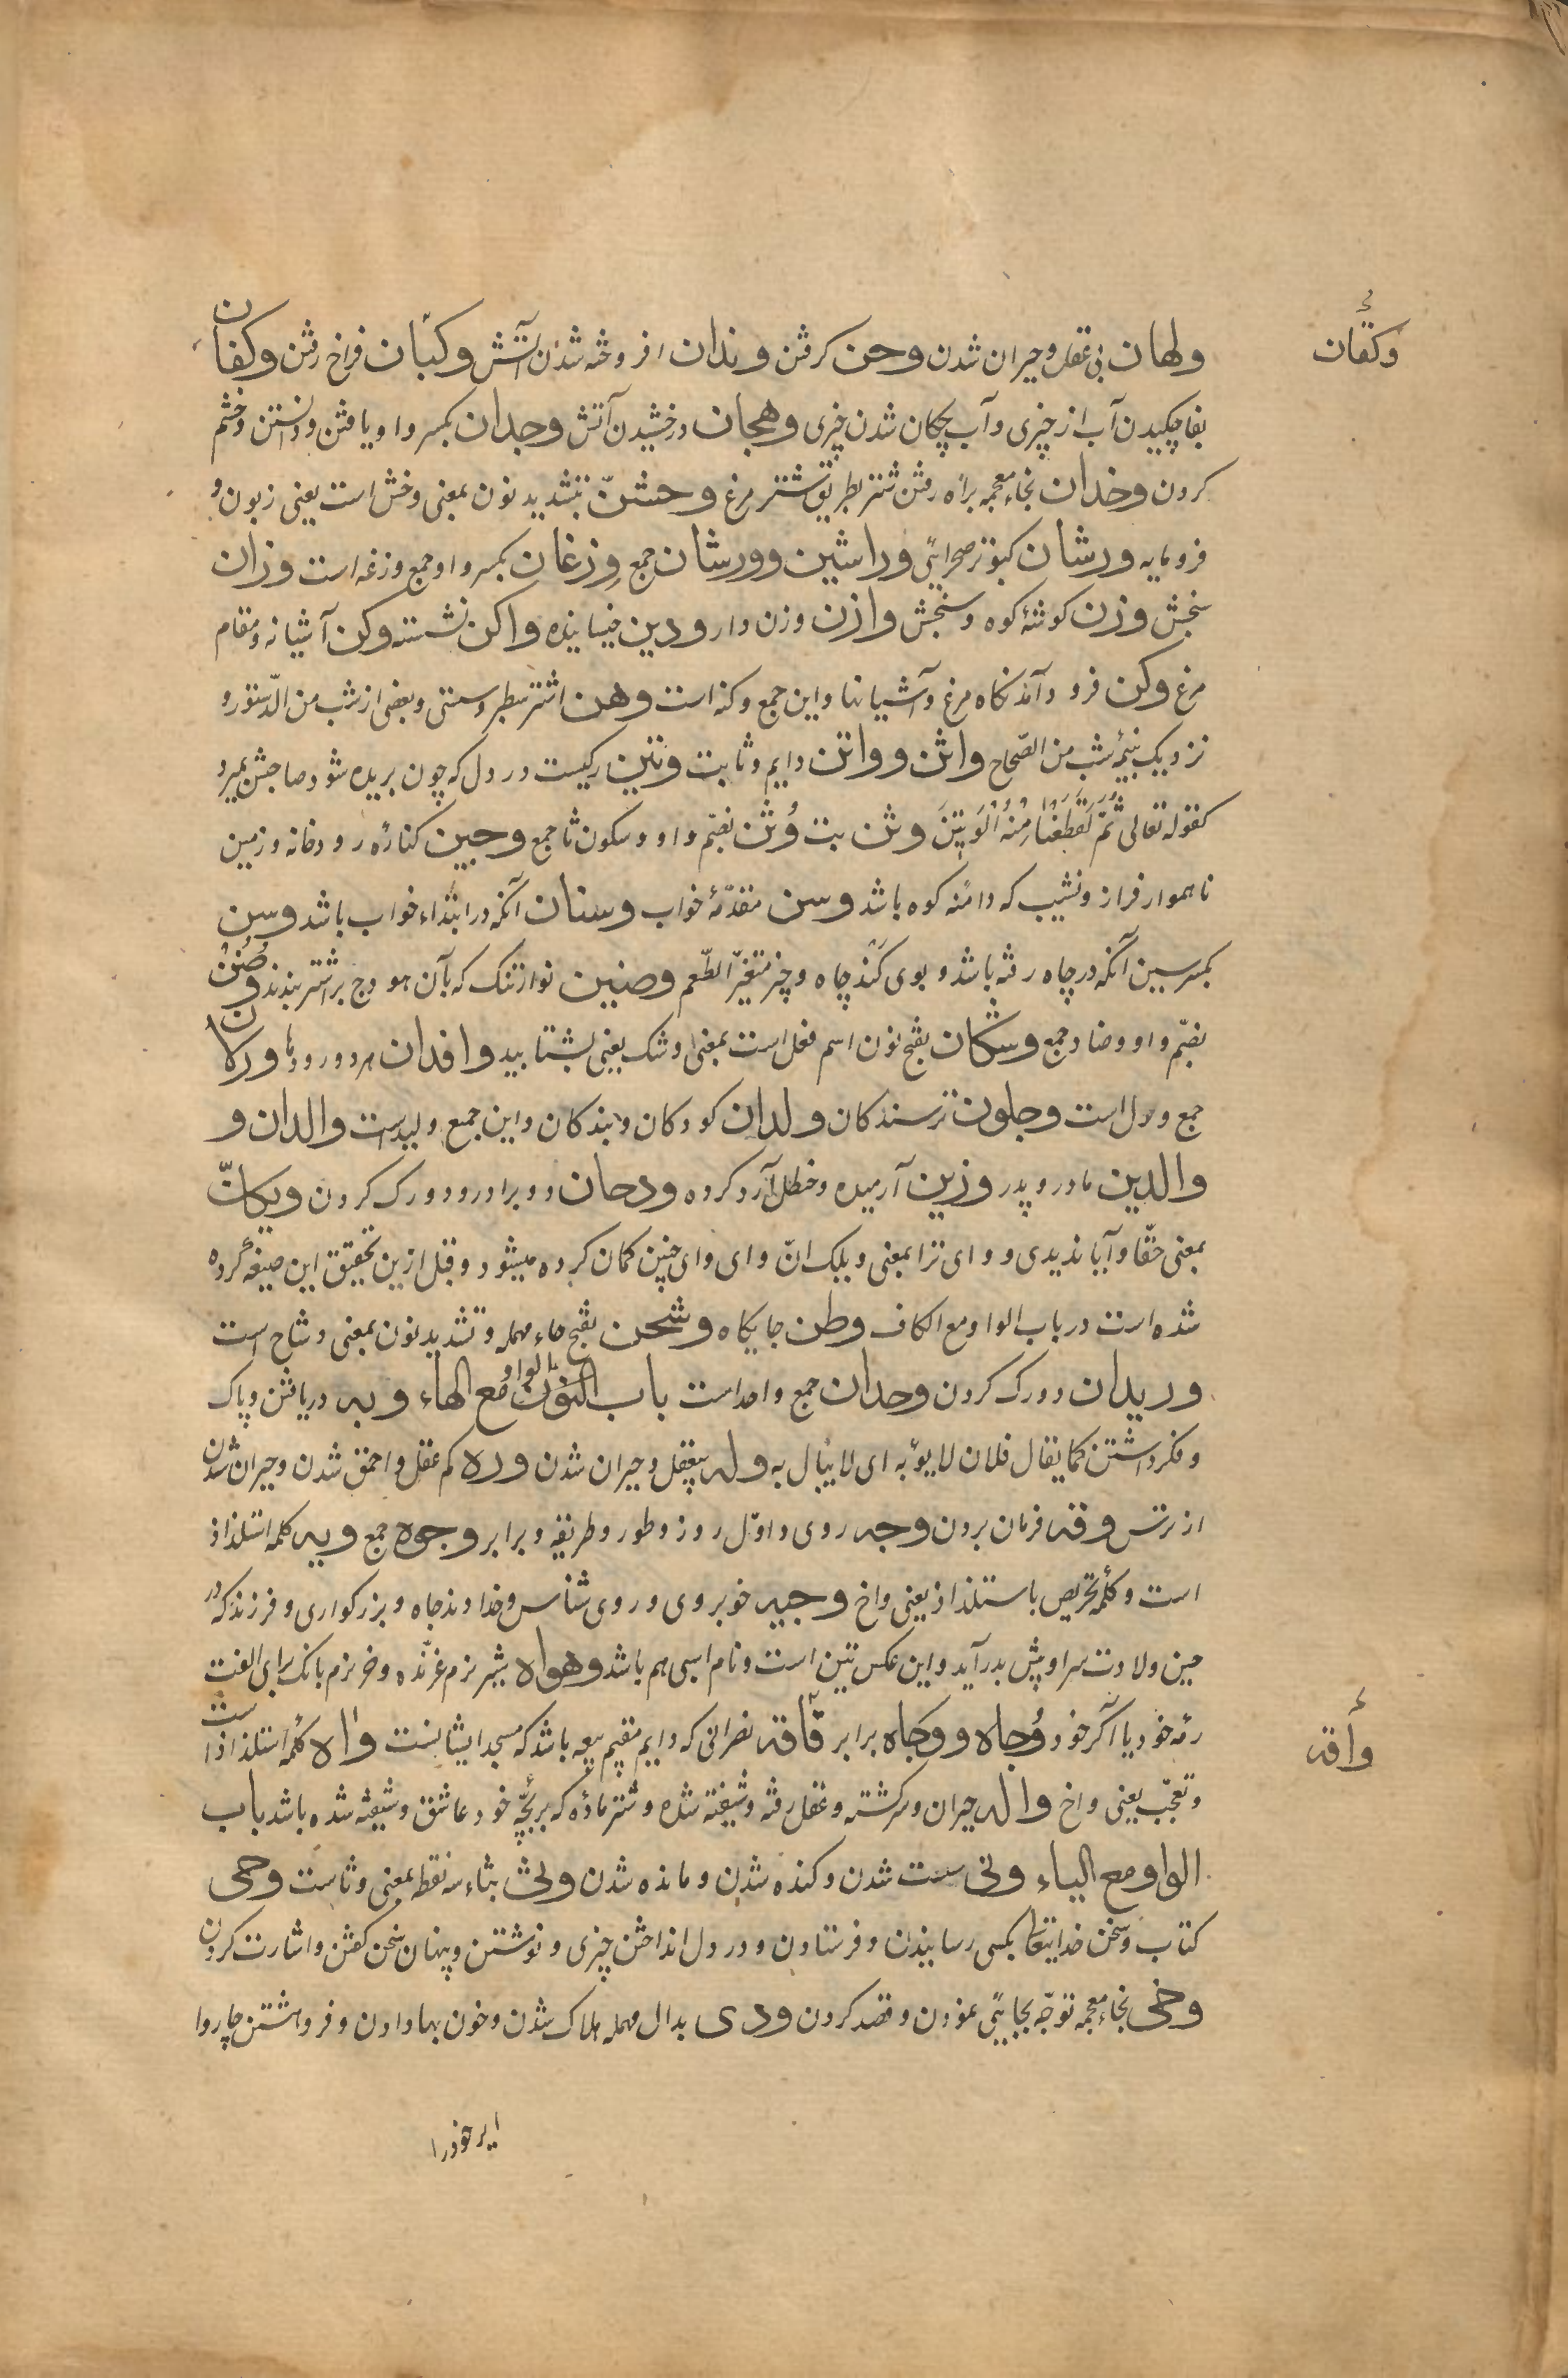 ولهان بی عقل و حیران شدن وحن کرفتن وندان افروخته شدن آتش وکبّان فراخ رفتن وکفان
وکفان
بفا چکیدن آب از چیزی و آب چکان شدن چیزی وهجان درخشیدن آتش وجدان بکسر واو یافتن و دانستن و خشم
کردن وخدان بخاء معجمه براه رفتن شتر بطریق شتر مرغ وخشنّ بتشدید نون بمعنی وخش است یعنی زبون و
فرومایه ورشان کبوتر صحرایی وراشین وورشان جمع وزغان بکسر واو جمع وزغه است وزان
سنجش وزن کوشهٔ کوه و سنجش وازن وزن دار ودین خیسانیده واکن نشسته وکن آشیانه و مقام
مرغ وکن فرود آمدنکاه مرغ و آشیانها و این جمع وکنه است وهن اشتر سطبر و سستی و بعضی از شب من الدّستور و
نزدیک بنیمهٔ شب من الصّحاح واثن وواتن دایم و ثابت وتین رکیست در دل که چون بریده شود صاحبش بمیرد
کقوله تعالی ثُمَّ لَقَطَعْنَا مِنْهُ الْوَتِینَ وثن بت وُثن بضمّ واو و سکون ثا جمع وجین کنارهٔ رودخانه و زمین
ناهموار فراز و نشیب که دامنهٔ کوه باشد وسن مقدّمهٔ خواب وسنان آنکه در ابتداء خواب باشد وسن
بکسر سین آنکه در چاه رفته باشد و بوی کند چاه و چیز متغیّر الطّعم وضین نوار تنک که بآن هودج بر اشتر بندند وُضُنْ
بضمّ واو و ضاد جمع وشکان بفتح نون اسم فعل است بمعنی اوشک یعنی بشتابید وافدان هر دو رودها ورلان
جمع ورل است وجلون ترسندکان ولدان کودکان و بندکان و این جمع ولید است والدان و
والدین مادر و پدر وزین آرمیده و حنظل آرد کرده ودحان دو برادر و دو رک کردن ویکانّ
بمعنی حقّا و آیا ندیدی و وای ترا بمعنی ویلک انّ و ای وای چنین کمان کرده میشود و قبل ازین تحقیق این صیغه کرده
شده است در باب الواو مع الکاف وطن جایکاه وشحن بفتح حاء مهمله و تشدید نون بمعنی وشاح است
وریدان دو رک کردن وحدان جمع واحد است باب الواو مع الهاء وبه دریافتن و پاک
و فکر داشتن کما یقال فلان لا یوبه ای لا یبال به وله بیعقل و حیران شدن وره کم عقل و احمق شدن و حیران شدن
از ترس وقه فرمان بردن وجه روی و اوّل روز و طور و طریقه و برابر وجوه جمع ویه کلمه استلذاذ
است و کلمهٔ تحریص باستلذاذ یعنی واخ وجیه خوبروی و روی شناس و خداوند جاه و بزرکواری و فرزند که در
حین ولادت سر او پیش بدر آید و این عکس تین است و نام اسبی هم باشد وهواه شیر نرم غرّنده و خر نرم بانک برای الفت
رمه خود یا آکر خود وُجاه ووجاه برابر قافه نصرانی که دایم مقیم بیعه باشد که مسجد ایشانست واه کلمهٔ استلذاذ است
وأقه
و تعجّب یعنی واخ واله حیران و سرکشته و عقل رفته و شیفته شده و شتر مادّه که بر بچّهٔ خود عاشق و شیفته شده باشد باب
الواو مع الیاء ونی سست شدن و کنده شدن و مانده شدن وثی بثاء سه نقطه بمعنی وثاست وحی
کتاب و سخن خدایتعا بکسی رسانیدن و فرستادن و در دل انداختن چیزی و نوشتن و پنهان سخن کفتن و اشارت کردن
وخی بخاء معجمه توجّه بجایی نمودن و قصد کردن ودی بدال مهمله هلاک شدن و خون بها دادن و فرو هشتن چاروا
ایر خودرا